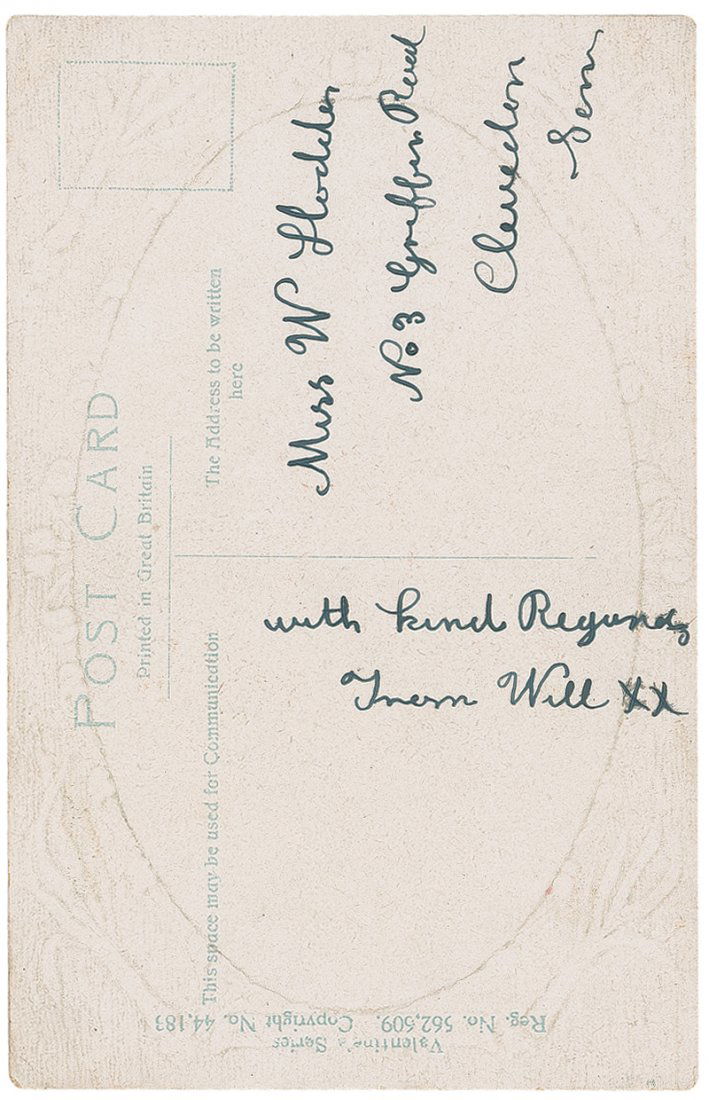 POST CARD
Printed in Great Britain
This space may be used for Communication
The Address to be written
here
Miss W Hodden
No 3 Griffin Road
Clevedon
Som
with kind Regards
From Will XX
Valentine's Series
Reg. No. 562,509. Copyright No. 44,183